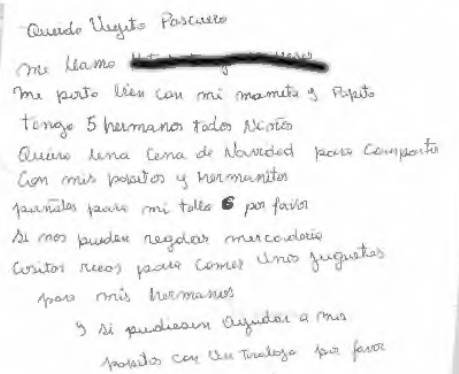 Querido Viejito Pascuero
me llamo
me porto bien con mi mamita y Papito
tengo 5 hermanos todos Niños
Quiero una Cena de Navidad para Compartir
Con mis papitos y hermanitos
pañales para mi talla 6 por favor
Si nos pueden regalar mercadería
Cositas ricas para comer Unos juguetes
para mis hermanos
y si pudiesen ayudar a mis
papitos con Un trabajo por favor